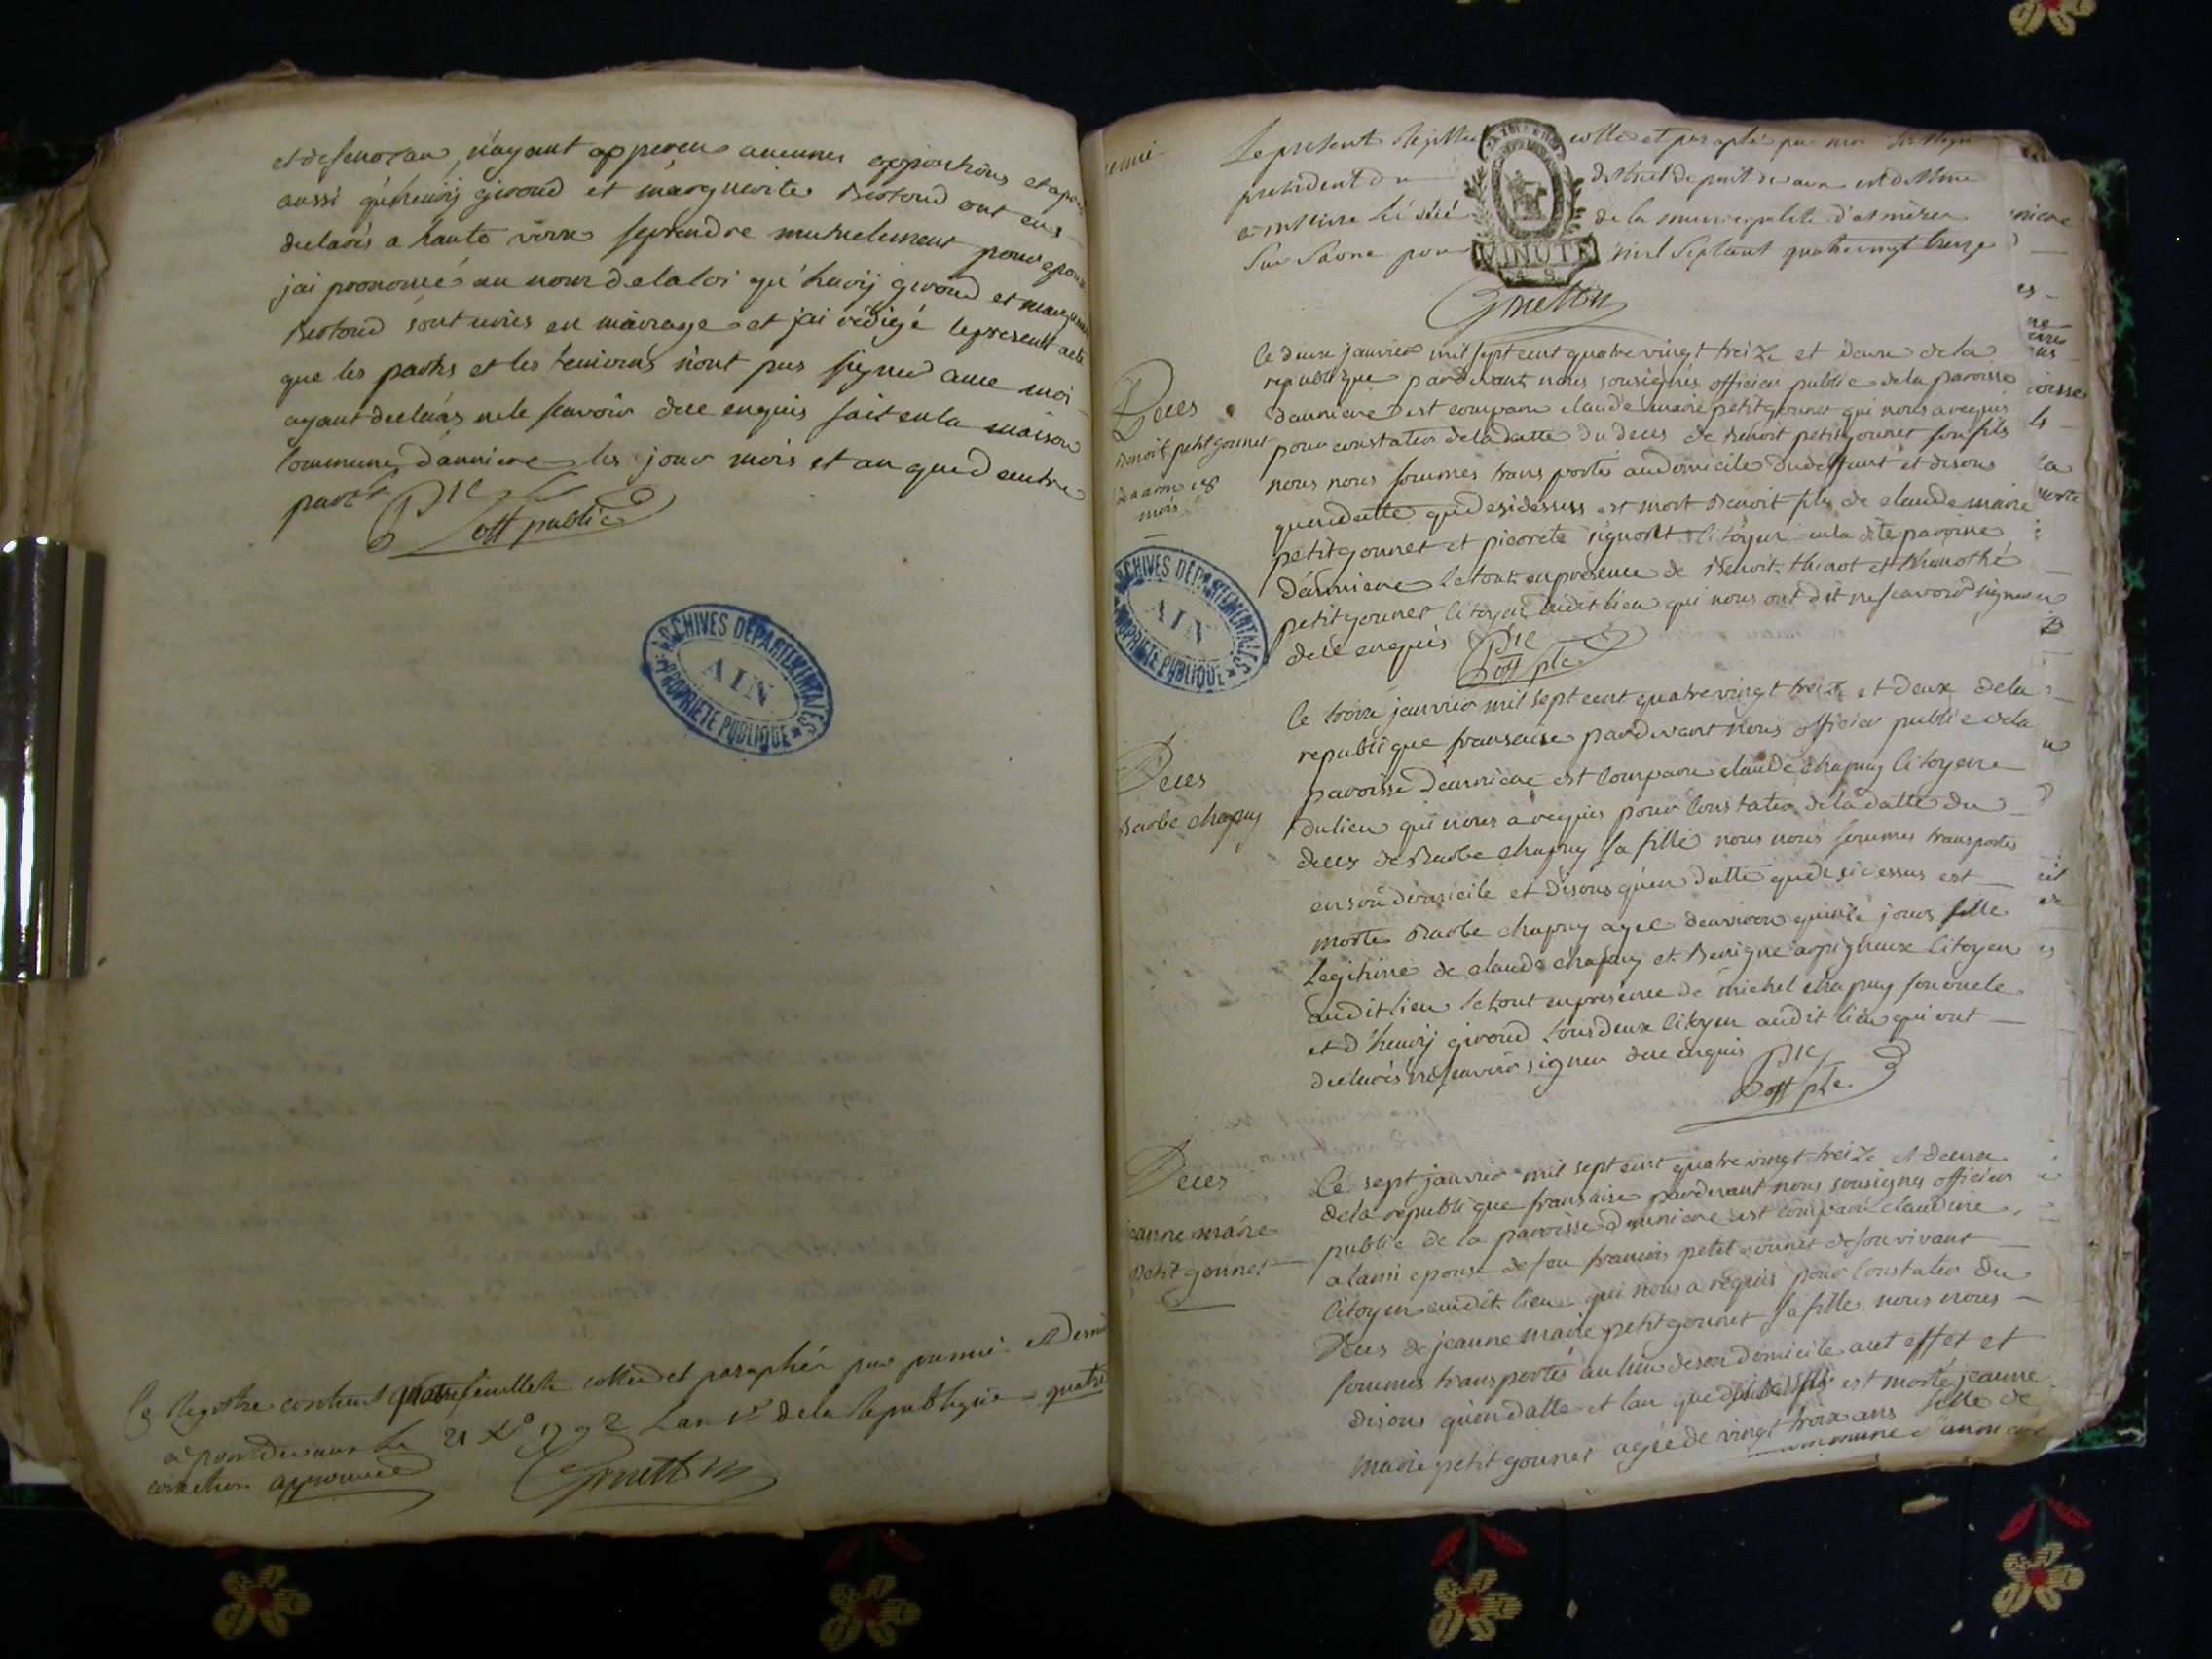 et de senozan, n'ayant apperçu aucunes oppositions et apres
aussi qu'henrij giroud et marguerite Bertoud ont eus
declarés a haute voixe se prendre mutuelement pour epoux
jai prononcé au nom de la loi qu'henrij giroud et marguerite
Bertoud sont unis en mairage et j'ai rédigé le present acte
que les parties et les temions n'ont pas signée avec moi
ayant declarés ne le scavoir dece enquis fait en la maison
commune d'asniere les jour mois et an que d'autre
part
off public
ARCHIVES DEPARTEMENTALES
AIN
PROPRIETE PUBLIQUE
Ce Registre contient quatre feuillets cottés et paraphés par premier et dernier
a pont de vaux le 21 Xbre 1792 L'an 1er de la Republique quatre
correction approuvée
Le present Registre cotté et paraphé par moi
president du district de pont de vaux
a été de la municipalité d'asnieres
sur Saone pour mil sept cent quatre vingt treize
MINUTE
4 S.
Deces
Benoit petit gounet
18
mois
Ce deux janvier mil sept cent quatre vingt treize et deux de la
republique pardevant nous sousignés officier public de la paroisse
dasniere est comparu claude marie petitgounet qui nous a requis
pour constater de la datte du deces de Benoit petitgounet son fils
nous nous sommes transportés au domicile du deffunt et disons
qu'en datte que desidessus est mort Benoit fils de claude marie
petitgounet et pierrete citoyen en la dite paroisse
d'asniere le tout en presence de Benoit thinot et thimothé
petitgounet citoyen audit lieu qui nous ont dit ne scavoir signer
dece enquis
off plc
Deces
Barbe chapuy
Ce troix janvier mil sept cent quatre vingt treize et deux de la
republique fransaise pardevant nous officier public de la
paroisse d'asniere est comparu claude chapuy citoyen
du lieu qui nous a requis pour constater de la datte du
deces de Barbe chapuy sa fille nous nous sommes transportes
en son domicile et disons qu'en datte que desidessus est
morte Barbe chapuy agee d'environ quinze jours fille
legitime de claude chapuy et Benigne arpigneux citoyen
audit lieu le tout en presence de michel chapuy son oncle
et d'henrij giroud tous deux citoyen audit lieu qui ont
declarés ne scavoir signer dece enquis
off plc
Deces
jeanne marie
Petit gounet
Ce sept janvier mil sept cent quatre vingt treize et deux
de la republique fransaise pardevant nous sousignes officier
public de la paroisse d'asniere est comparu claudine
alami epouse de feu francois petit gounet de son vivant
citoyen audit lieu qui nous a requis pour constater du
deces de jeanne marie petitgounet sa fille nous nous
sommes transportés au lieu de son domicile a cet effet et
disons qu'en datte et l'an que desidessus est morte jeanne
marie petit gounet agée de vingt troix ans fille de
commune d'asniere
ARCHIVES DEPARTEMENTALES
AIN
PROPRIETE PUBLIQUE